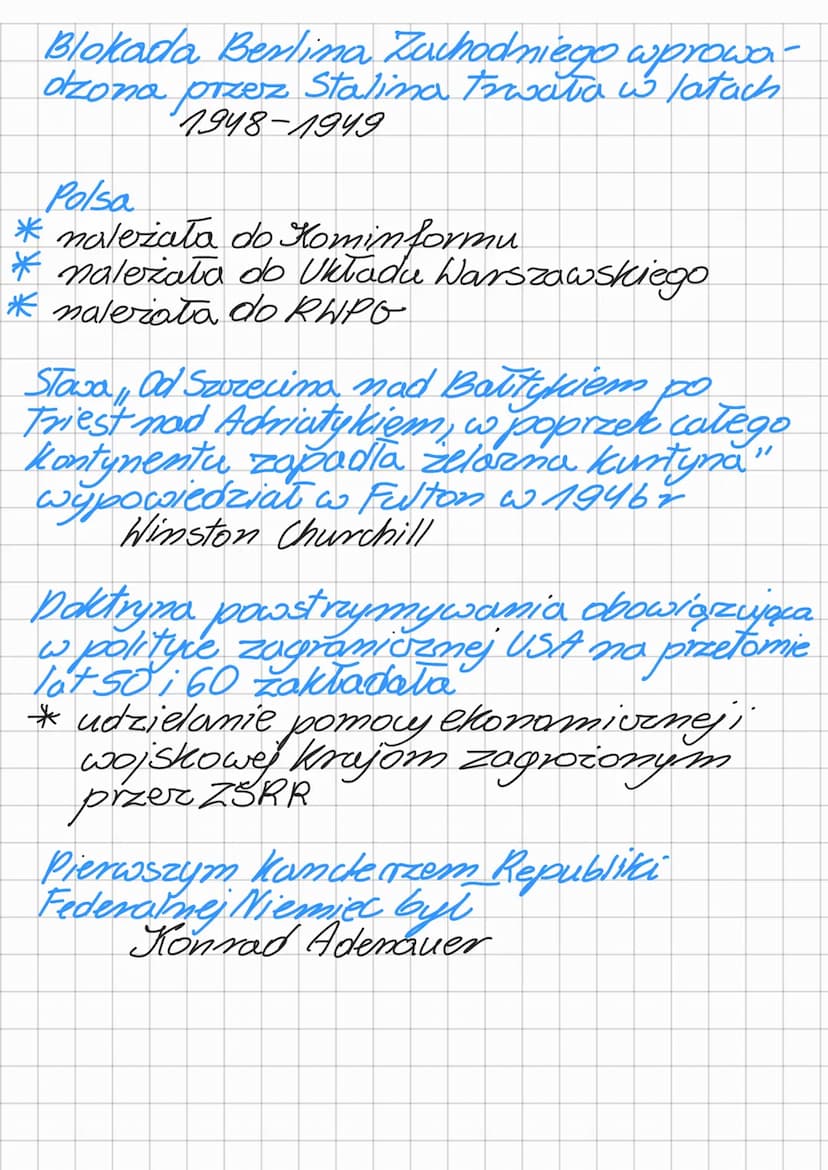 Blokada Berlina Zachodniego wprowa-
dzona przez Stalina trwała w latach
1948-1949
Polsa
* należała do Kominformu
* należała do Układu Warszawskiego
* należała do RWPG
Słowa „Od Szczecina nad Bałtykiem po
Triest nad Adriatykiem, w poprzek całego
kontynentu zapadła żelazna kurtyna"
wypowiedział w Fulton w 1946 r
Winston Churchill
Doktryna powstrzymywania obowiązująca
w polityce zagranicznej USA na przełomie
lat 50 i 60 zakładała
* udzielanie pomocy ekonomicznej i
wojskowej krajom zagrożonym
przez ZSRR
Pierwszym kanclerzem Republiki
Federalnej Niemiec był
Konrad Adenauer